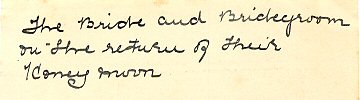 The Bride and Bridegroom
on the return of their
Honey moon